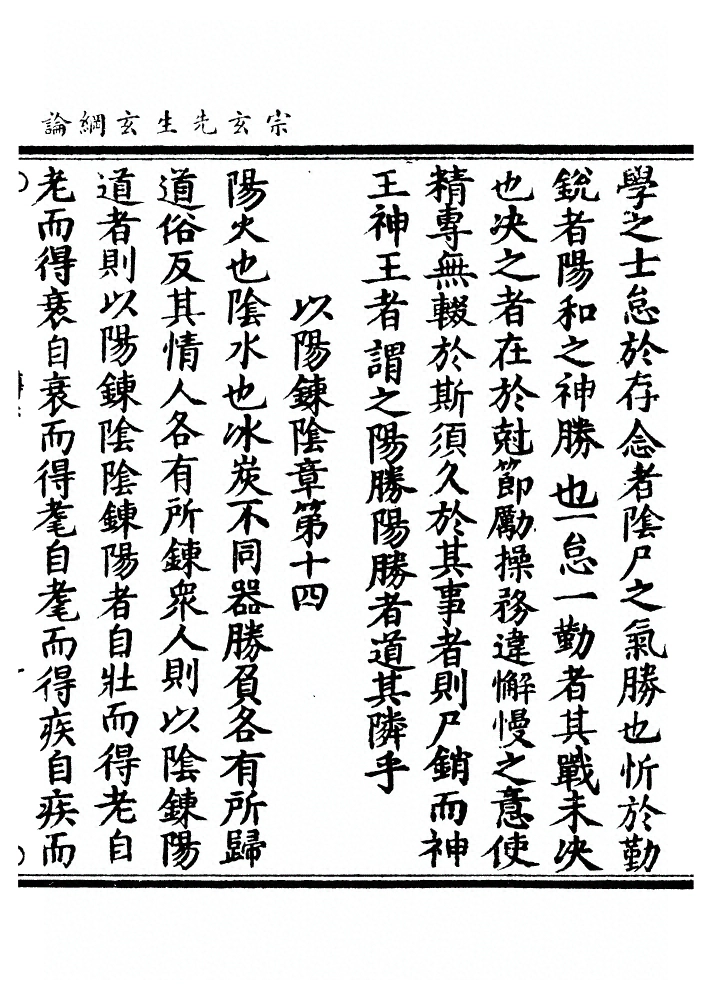 宗玄先生玄綱論
學之士怠於存念者陰尸之氣勝也忻於勤
銳者陽和之神勝也一怠一勤者其戰未决
也决之者在於尅節勵操務違懈慢之意使
精專無輟於斯須久於其事者則尸銷而神
王神王者謂之陽勝陽勝者道其隣乎
以陽鍊陰章第十四
陽火也陰水也冰炭不同器勝負各有所歸
道俗反其情人各有所鍊衆人則以陰鍊陽
道者則以陽鍊陰陰鍊陽者自壯而得老自
老而得衰自衰而得耄自耄而得疾自疾而